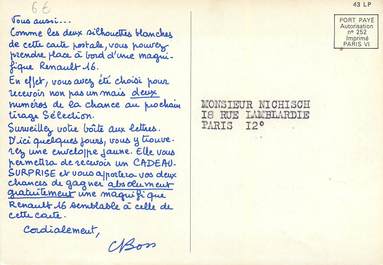 6€
43 LP
PORT PAYÉ
Autorisation
n° 252
Imprimé
PARIS VI
Vous aussi...
Comme les deux silhouettes blanches
de cette carte postale, vous pouvez
prendre place à bord d'une magni-
fique Renault 16.
En effet, vous avez été choisi pour
recevoir non pas un mais deux
numéros de la chance au prochain
tirage Sélection.
Surveillez votre boîte aux lettres.
D'ici quelques jours, vous y trouve-
rez une enveloppe jaune. Elle vous
permettra de recevoir un CADEAU-
SURPRISE et vous apportera vos deux
chances de gagner absolument
gratuitement une magnifique
Renault 16 semblable à celle de
cette carte.
Cordialement,
CBoss
MONSIEUR NICHISCH
18 RUE LAMBLARDIE
PARIS 12°